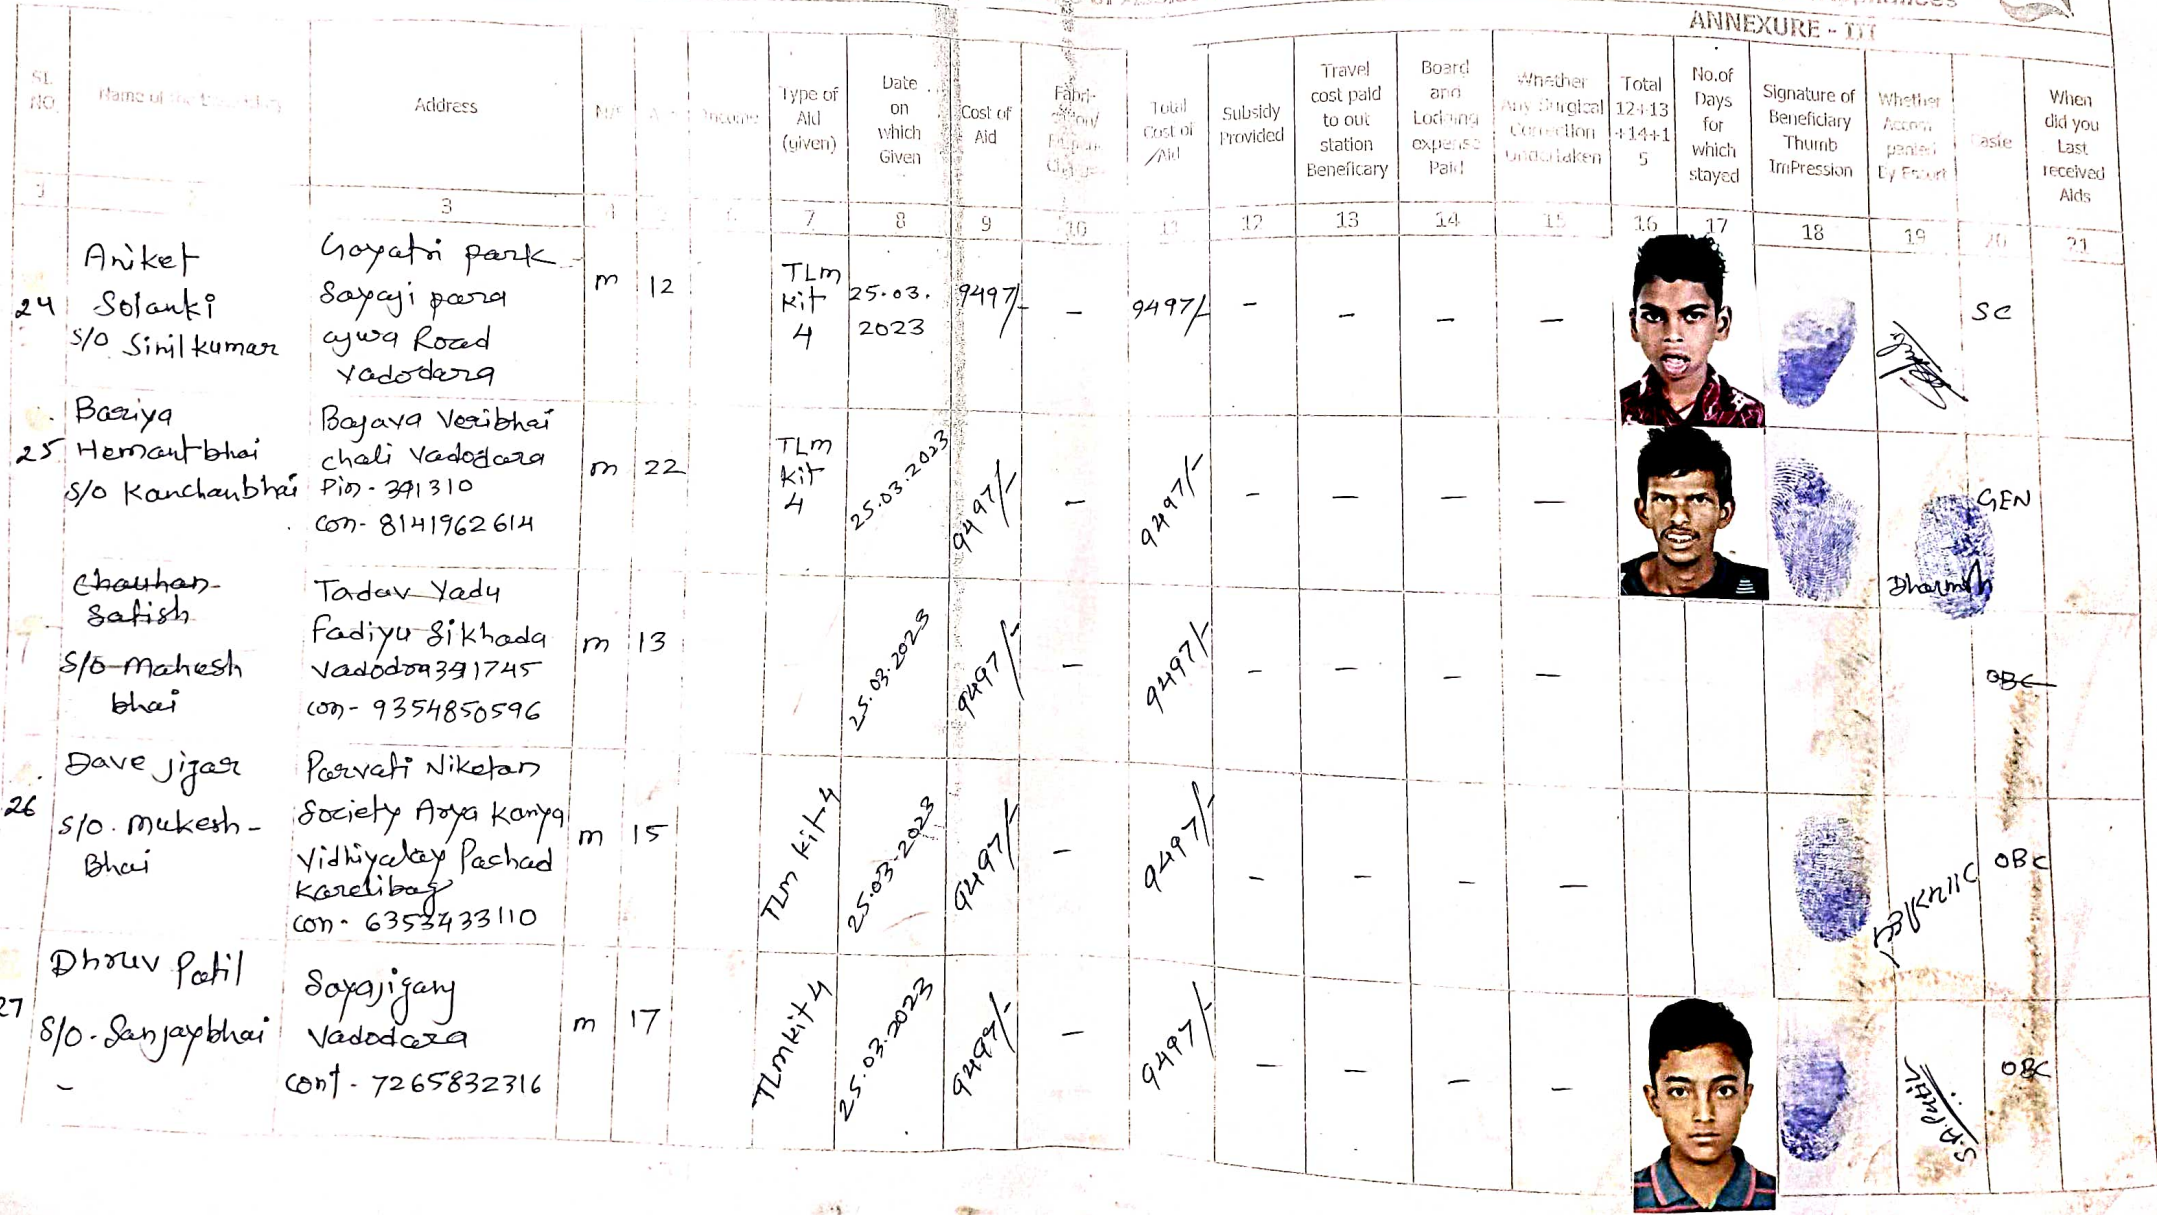 ANNEXURE - III
SL. NO.
Name of the
Address
M/F
Income
Type of Aid (given)
Date on which Given
Cost of Aid
Total Cost of Aid
Subsidy Provided
Travel cost paid to out station Beneficary
Board and Lodging expense Paid
Whether Any Surgical Correction Undertaken
Total 12+13 +14+1 5
No.of Days for which stayed
Signature of Beneficiary Thumb ImPression
Whether Accom panied By Escort
Caste
When did you Last received Aids
3 7 8 9 10 11 12 13 14 15 16 17 18 19 20 21
24
Aniket
Solanki
S/O Sinilkumar
Gayatri park
Sayaji para
ajwa Road
Vadodara
m
12
TLm
Kit
4
25.03.
2023
9497/-
-
9497/-
-
-
-
-
SC
25
Bariya
Hemantbhai
S/O Kanchanbhai
Bajava Veribhai
chali Vadodara
Pin - 391310
con- 8141962614
m
22
TLm
Kit
4
25.03.2023
9497/-
-
9497/-
-
-
-
-
GEN
Chauhan
Satish
S/O Mahesh
bhai
Tadav Yadu
fadiyu Sikhada
Vadodra 391745
con- 9354850596
m
13
25.03.2023
9497/-
-
9497/-
-
-
-
-
OBC
26
Dave jigar
S/O. Mukesh-
Bhai
Parvati Niketan
Society Arya Kanya
Vidhiyalay Pachad
Karelibag
con- 6353433110
m
15
TLm Kit 4
25.03.2023
9497/-
-
9497/-
-
-
-
-
OBC
27
Dhruv Patil
S/O- Sanjaybhai
-
Sayajiganj
Vadodara
cont - 7265832316
m
17
TLm Kit 4
25.03.2023
9497/-
-
9497/-
-
-
-
-
S.A.Patil
OBC